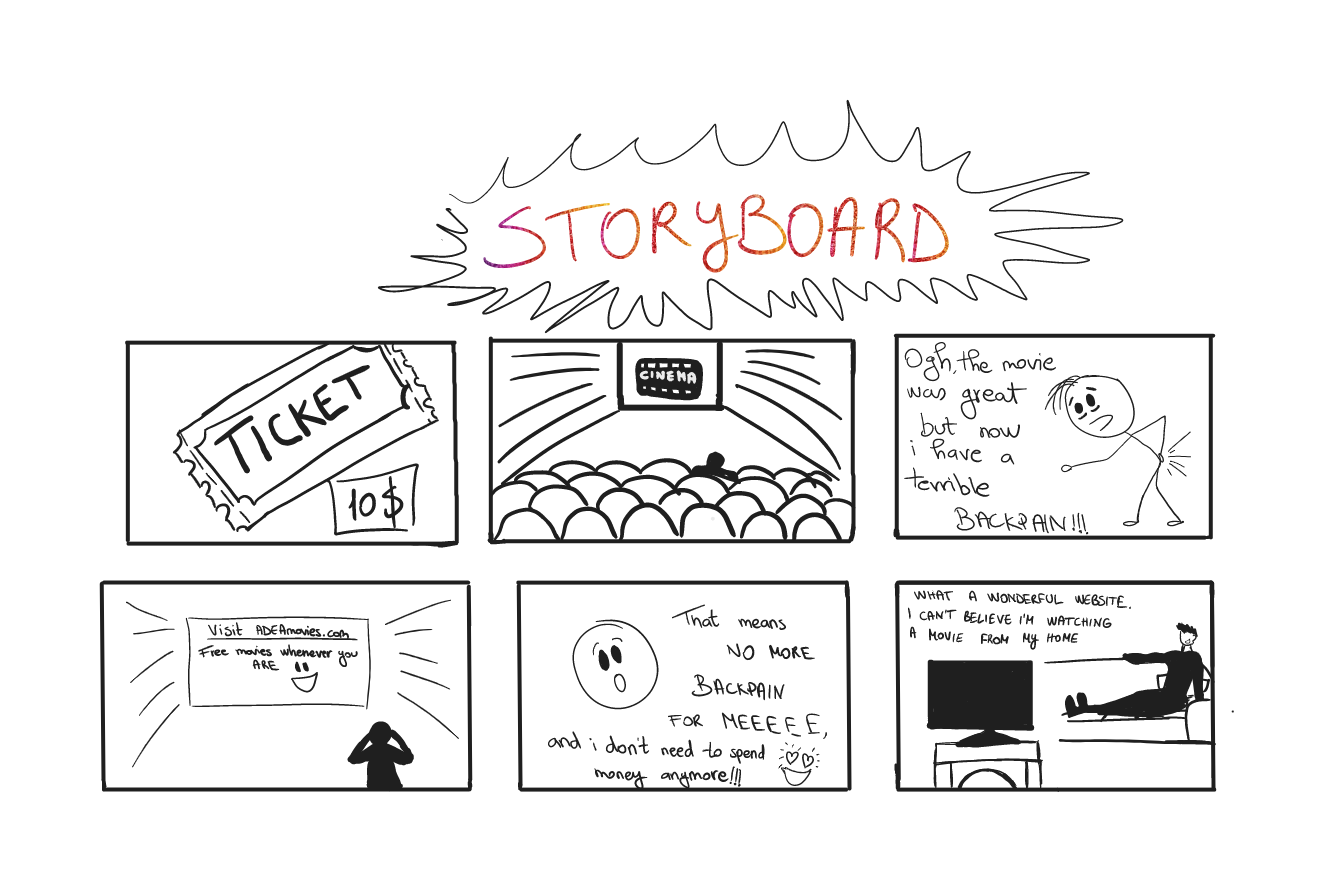 STORYBOARD
TICKET
10$
CINEMA
Ogh, the movie
was great
but now
i have a
terrible
BACKPAIN!!!
Visit ADEAmovies.com
Free movies whenever you
ARE
That means
NO MORE
BACKPAIN
FOR MEEEEE,
and i don't need to spend
money anymore!!!
WHAT A WONDERFUL WEBSITE.
I CAN'T BELIEVE I'M WATCHING
A MOVIE FROM MY HOME